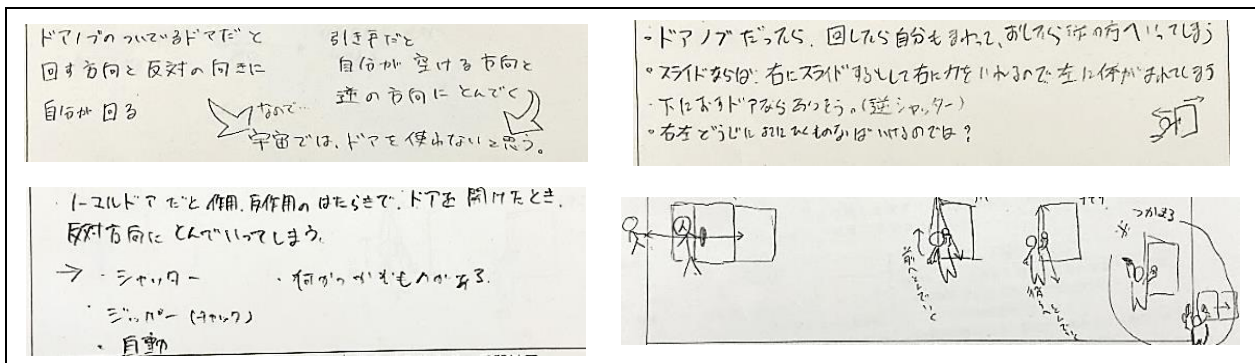 ドアノブのついているドアだと
回す方向と反対の向きに
自分が回る
引き戸だと
自分が空ける方向と
逆の方向にとんでく
なので…
宇宙では、ドアを使わないと思う。
・ドアノブだったら、回したら自分もまわって、おしたら後の方へいってしまう
・スライドならば、右にスライドするとして右に力をいれるので左に体がまわってしまう
・下におすドアならありそう。(逆シャッター)
・右左どうじに よこにひくものならばいけるのでは?
・ノーマルドアだと作用、反作用のはたらきで、ドアを開けたとき、
反対方向にとんでいってしまう。
→ ・シャッター ・何かつかむものがある。
・ジッパー(チャック)
・自動
前へとんでいく
後ろへとんでいく
つかまる